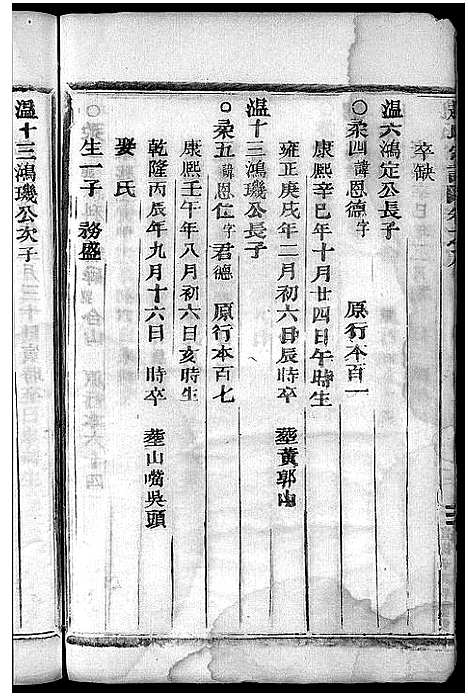 卒缺
温六鴻定公長子
○柔四諱恩德字　原行本百一
康熙辛巳年十月廿四日午時生
雍正庚戌年二月初六日辰時卒　塟黄郭山
温十三鴻璣公長子
○柔五諱恩仁字君德　原行本百七
康熙壬午年八月初六日亥時生
乾隆丙辰年九月十六日　時卒　塟山嘴吳頭
娶氏
生一子　務盛
温十三鴻璣公次子